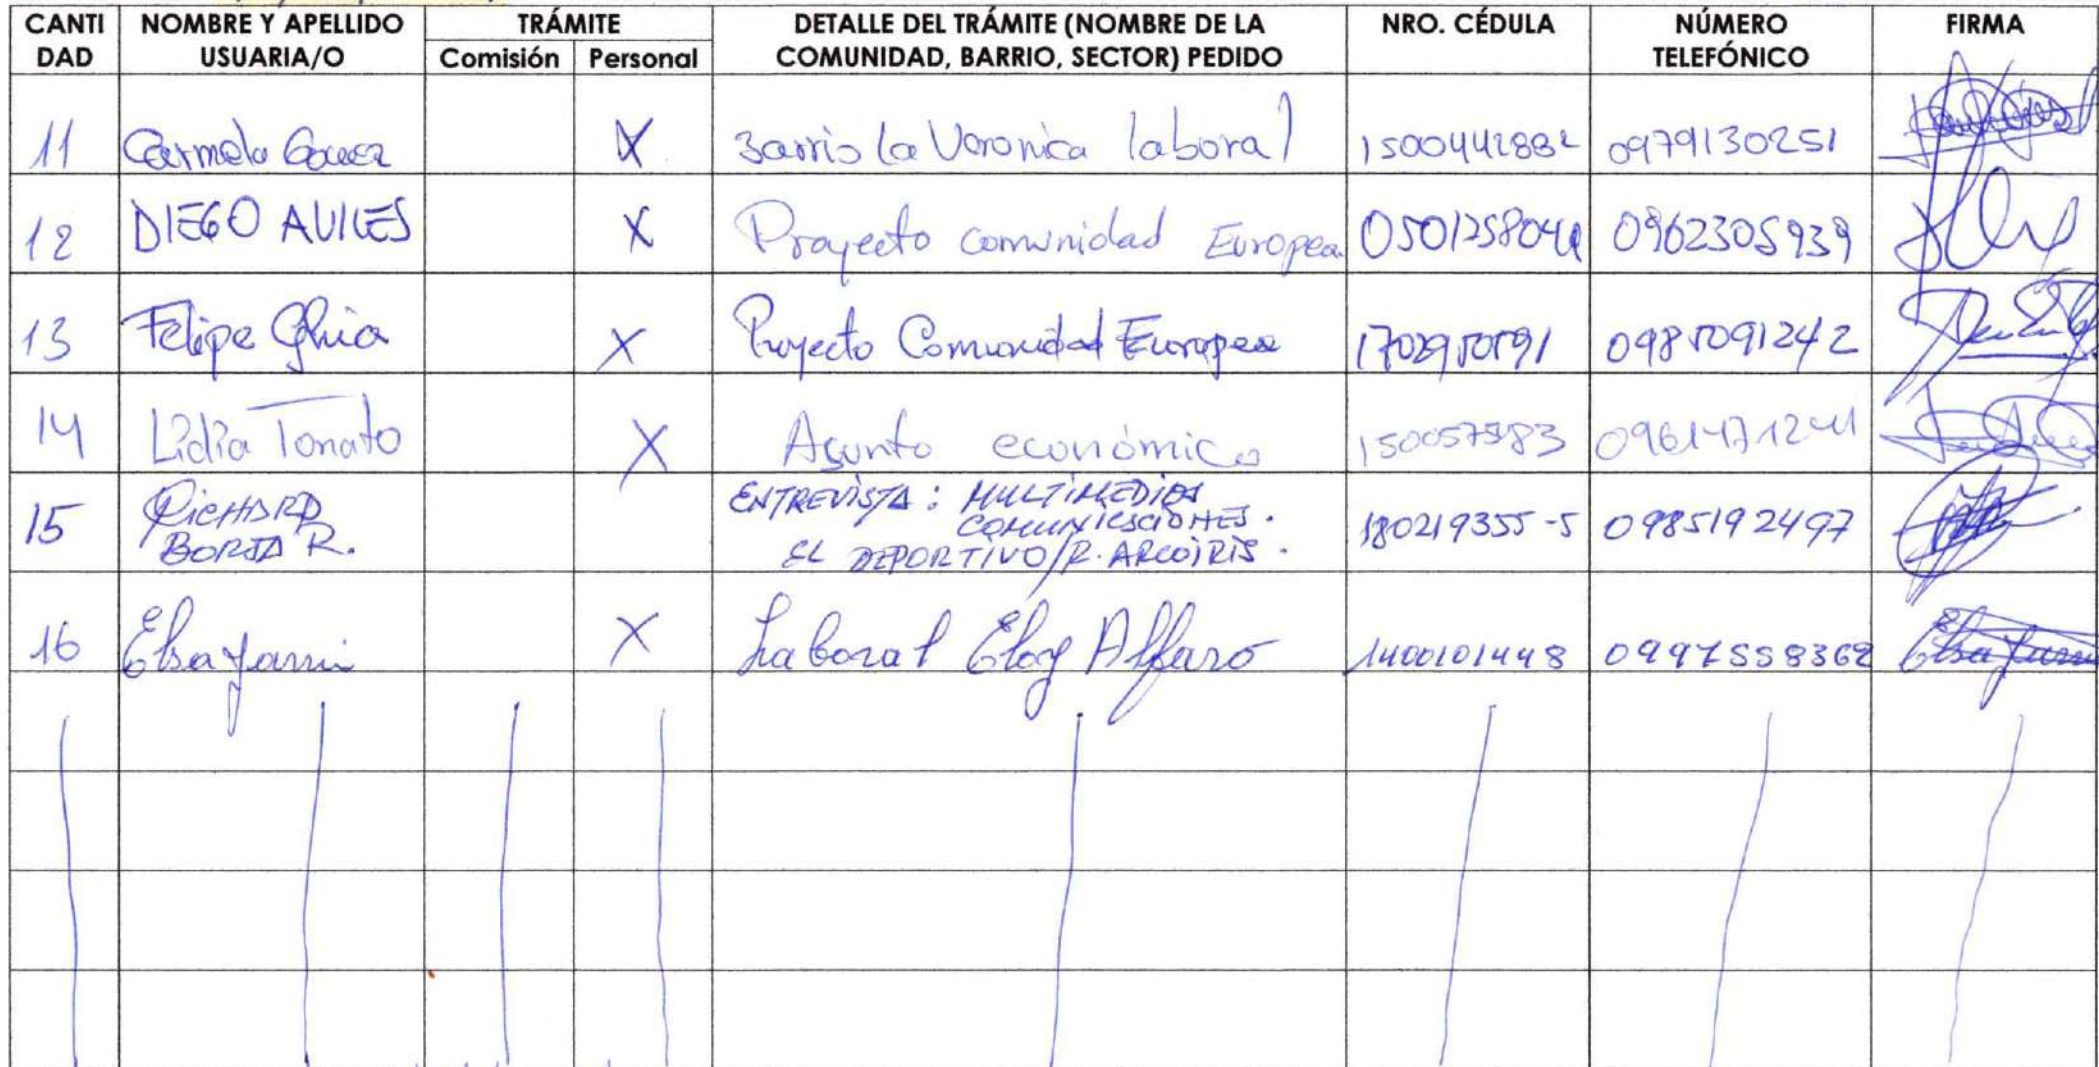 CANTI DAD NOMBRE Y APELLIDO USUARIA/O TRÁMITE Comisión Personal DETALLE DEL TRÁMITE (NOMBRE DE LA COMUNIDAD, BARRIO, SECTOR) PEDIDO NRO. CÉDULA NÚMERO TELEFÓNICO FIRMA
11 Carmela X Barrio la Veronica laboral 1500442882 0979130251
12 DIEGO AVILES X Proyecto comunidad Europea 0501258044 0962305939
13 Felipe X Proyecto Comunidad Europea 1702950591 0985091242
14 Lidia Tonato X Asunto económico 150057583
15 RICHARD BORJA R. ENTREVISTA: MULTIMEDIOS COMUNICACIONES. EL DEPORTIVO/R. ARCOIRIS. 180219355-5 0985192497
16 Elsa Yarri X Laboral Eloy Alfaro 1400101448 0997558362 Elsa Yarri